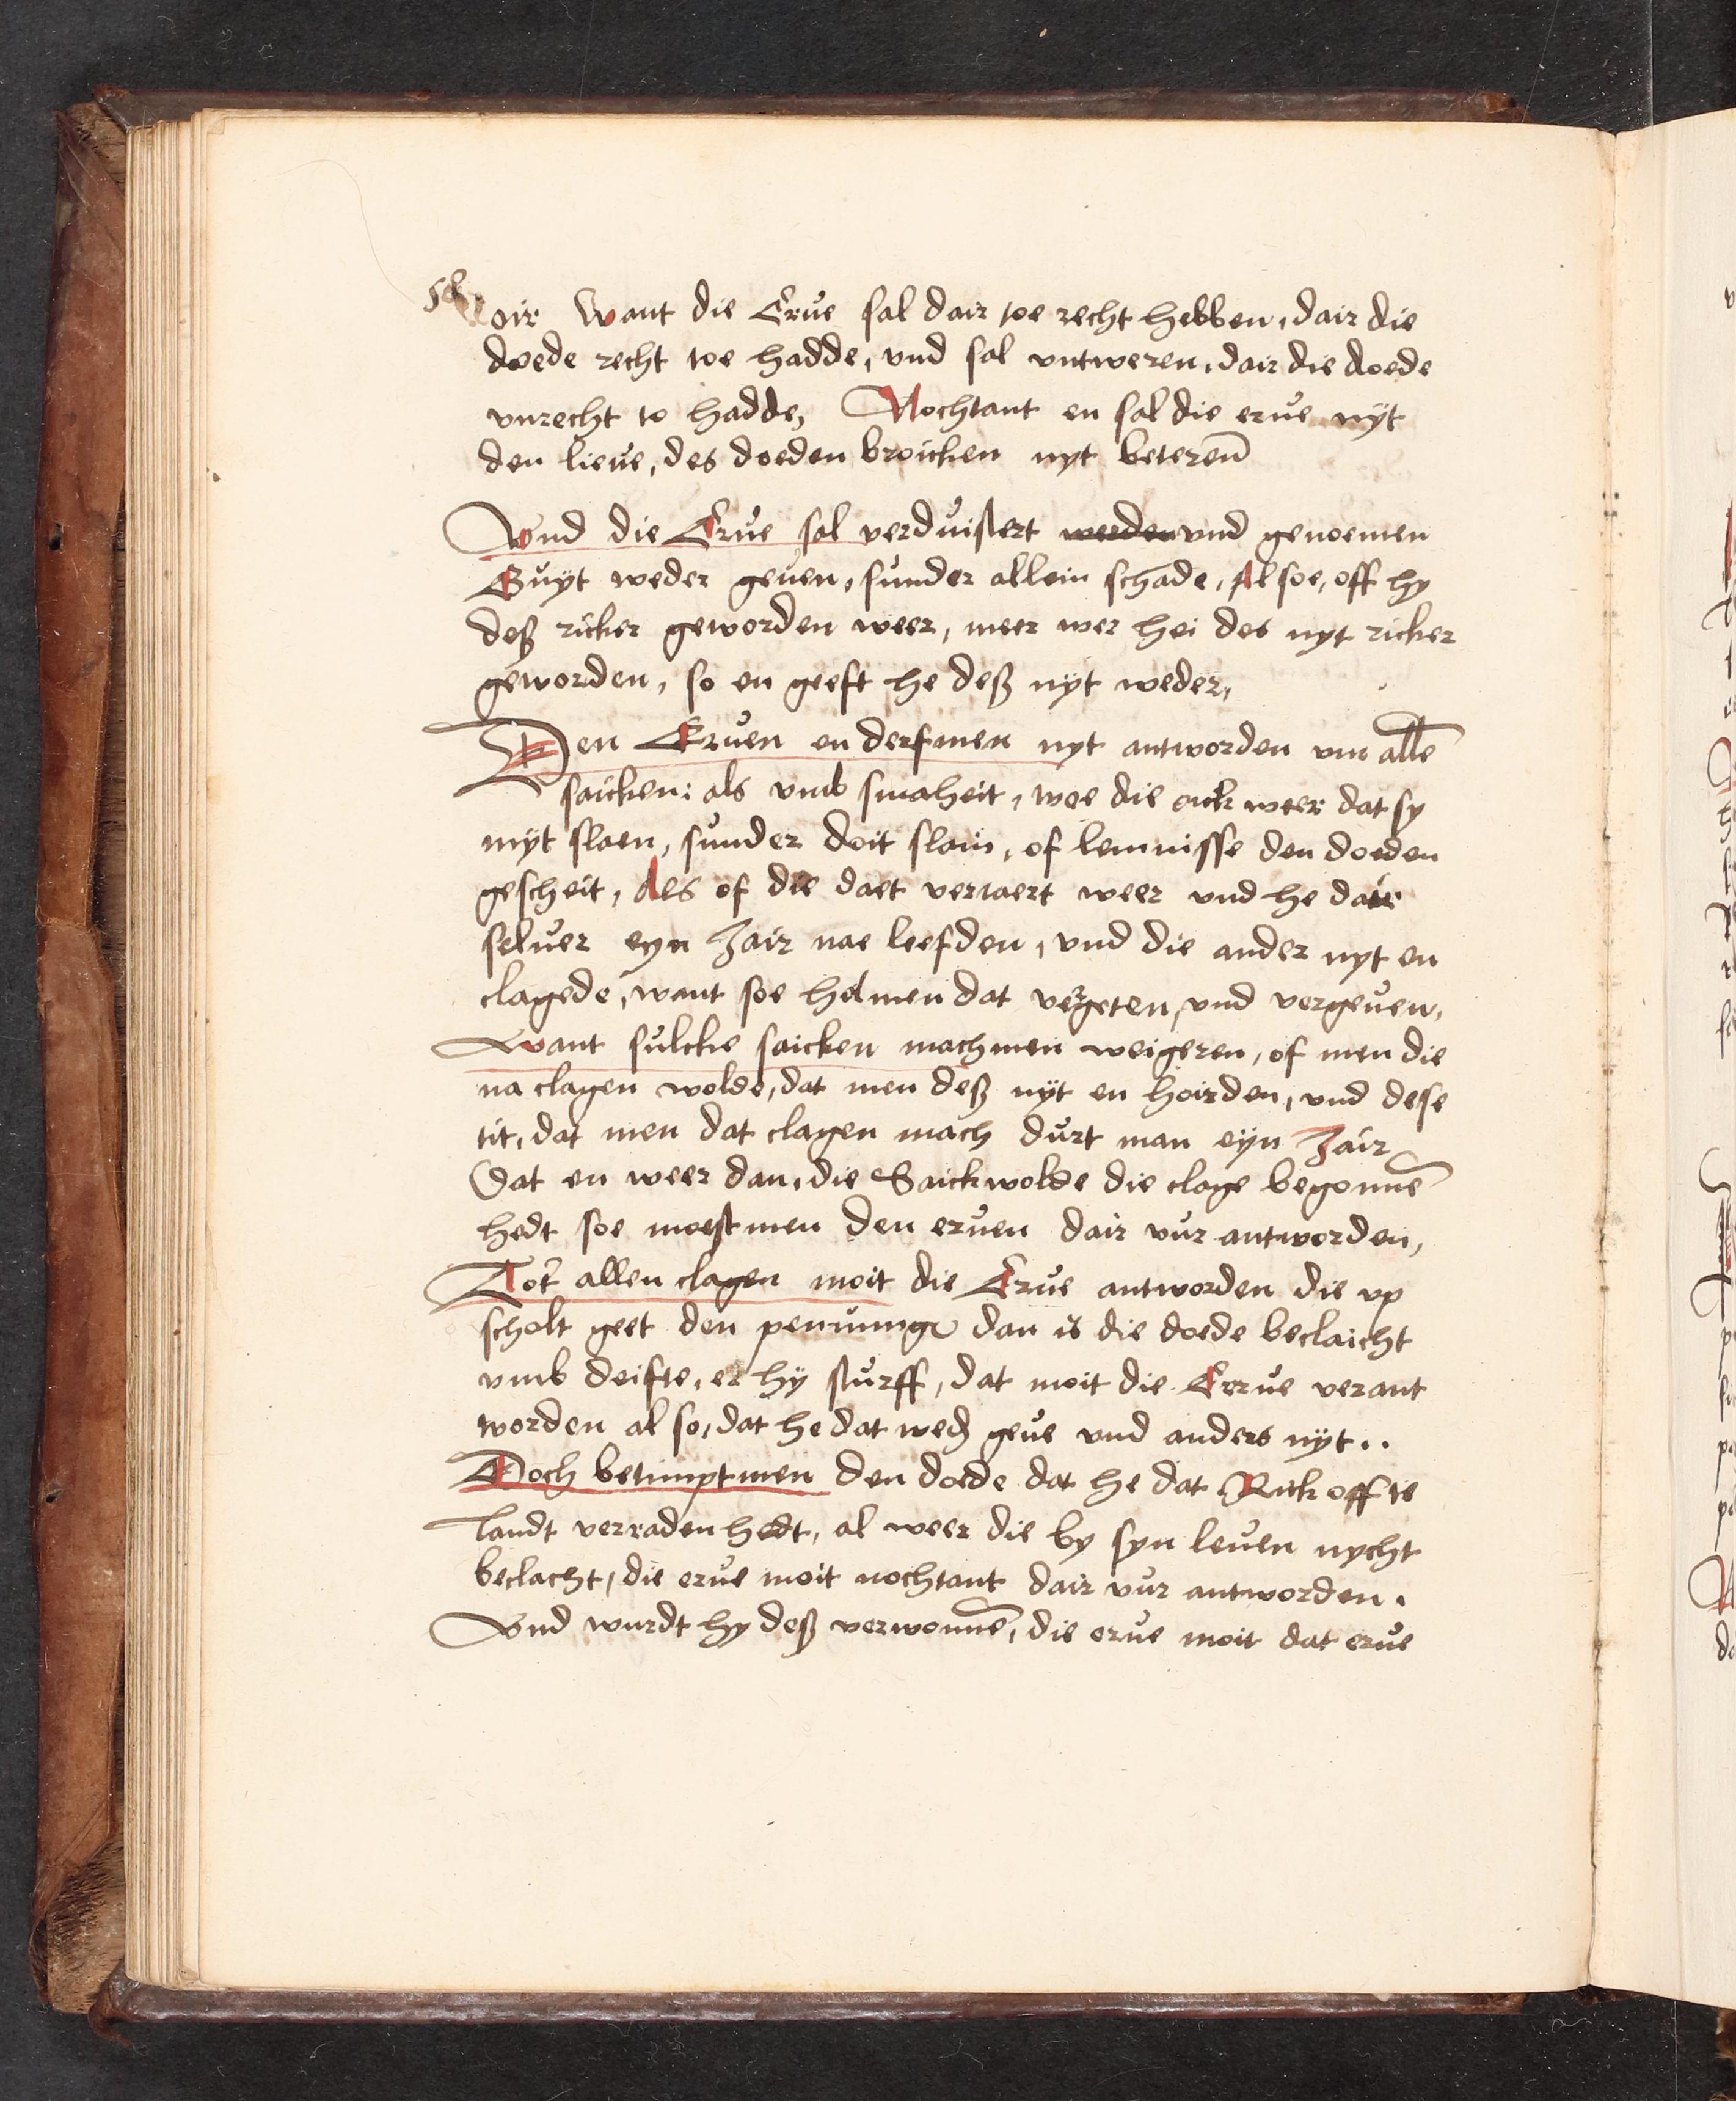 oir Want die Erue sal dair toe recht hebben, dair die
doede recht toe hadde, vnd sal vntweren, dair die doede
vnrecht to hadde, Nochtant en sal die erue nÿt
den lieue, des doeden broicken nyt beteren̄
Vnd die Erue sal verduistert werden vnd genoemen
Guÿt weder geuen, sunder allein schade, Al soe, off hy
deß ricker geworden weer, meer wer hei des nyt ricker
geworden, so en geeft he deß nÿt weder,
Den Eruen en derfmen nyt antworden vm alle
saicken: als vmb smaheit, woe die oick weer dat sy
mÿt slaen, sunder doit slain, of lemnisse den doeden
gescheit, Als of die daet veriaert weer vnd he dair
seluer eyn Jair nae leefden, vnd die ander nyt en
clagede, want soe helmen dat vergeten, vnd vergeuen,
Want sulcke saicken machmen weigeren, of men die
na clagen wolde, dat men deß nÿt en hoirden, vnd dese
tit, dat men dat clagen mach durt man eÿn Jair
Dat en weer dan, die Saickwolde die clage begonnē
hedt soe moestmen den eruen dair vur antworden,
Tot allen clagen moit die Erue antworden die vp
scholt geet den pennunge dan is die doede beclaicht
vmb deifte, er hÿ sturff, dat moit die Errue verant
worden al so, dat he dat wed geue vnd anders nÿt..
Doch betimptmen den doede dat he dat Rick off te
landt verraden hedt, al weer die by syn leuen nycht
beclacht, die erue moit nochtant dair vur antworden.
Vnd wurdt hy deß verwonnē, die erue moit dat erue